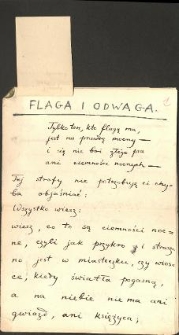 FLAGA I ODWAGA.
Tylko ten, kto flagę ma,
jest na prawdę mocny —
i się nie boi złego psa
ani ciemności nocnych —
Tej strofy nie potrzebuję ci chy-
ba objaśniać:
Wszystko wiesz:
wiesz, co to są ciemności noc-
ne, czyli jak przykro i straszno
jest w miasteczku, czy wiosce,
kiedy światła pogasną,
a na niebie nie ma ani
gwiazd, ani księżyca;